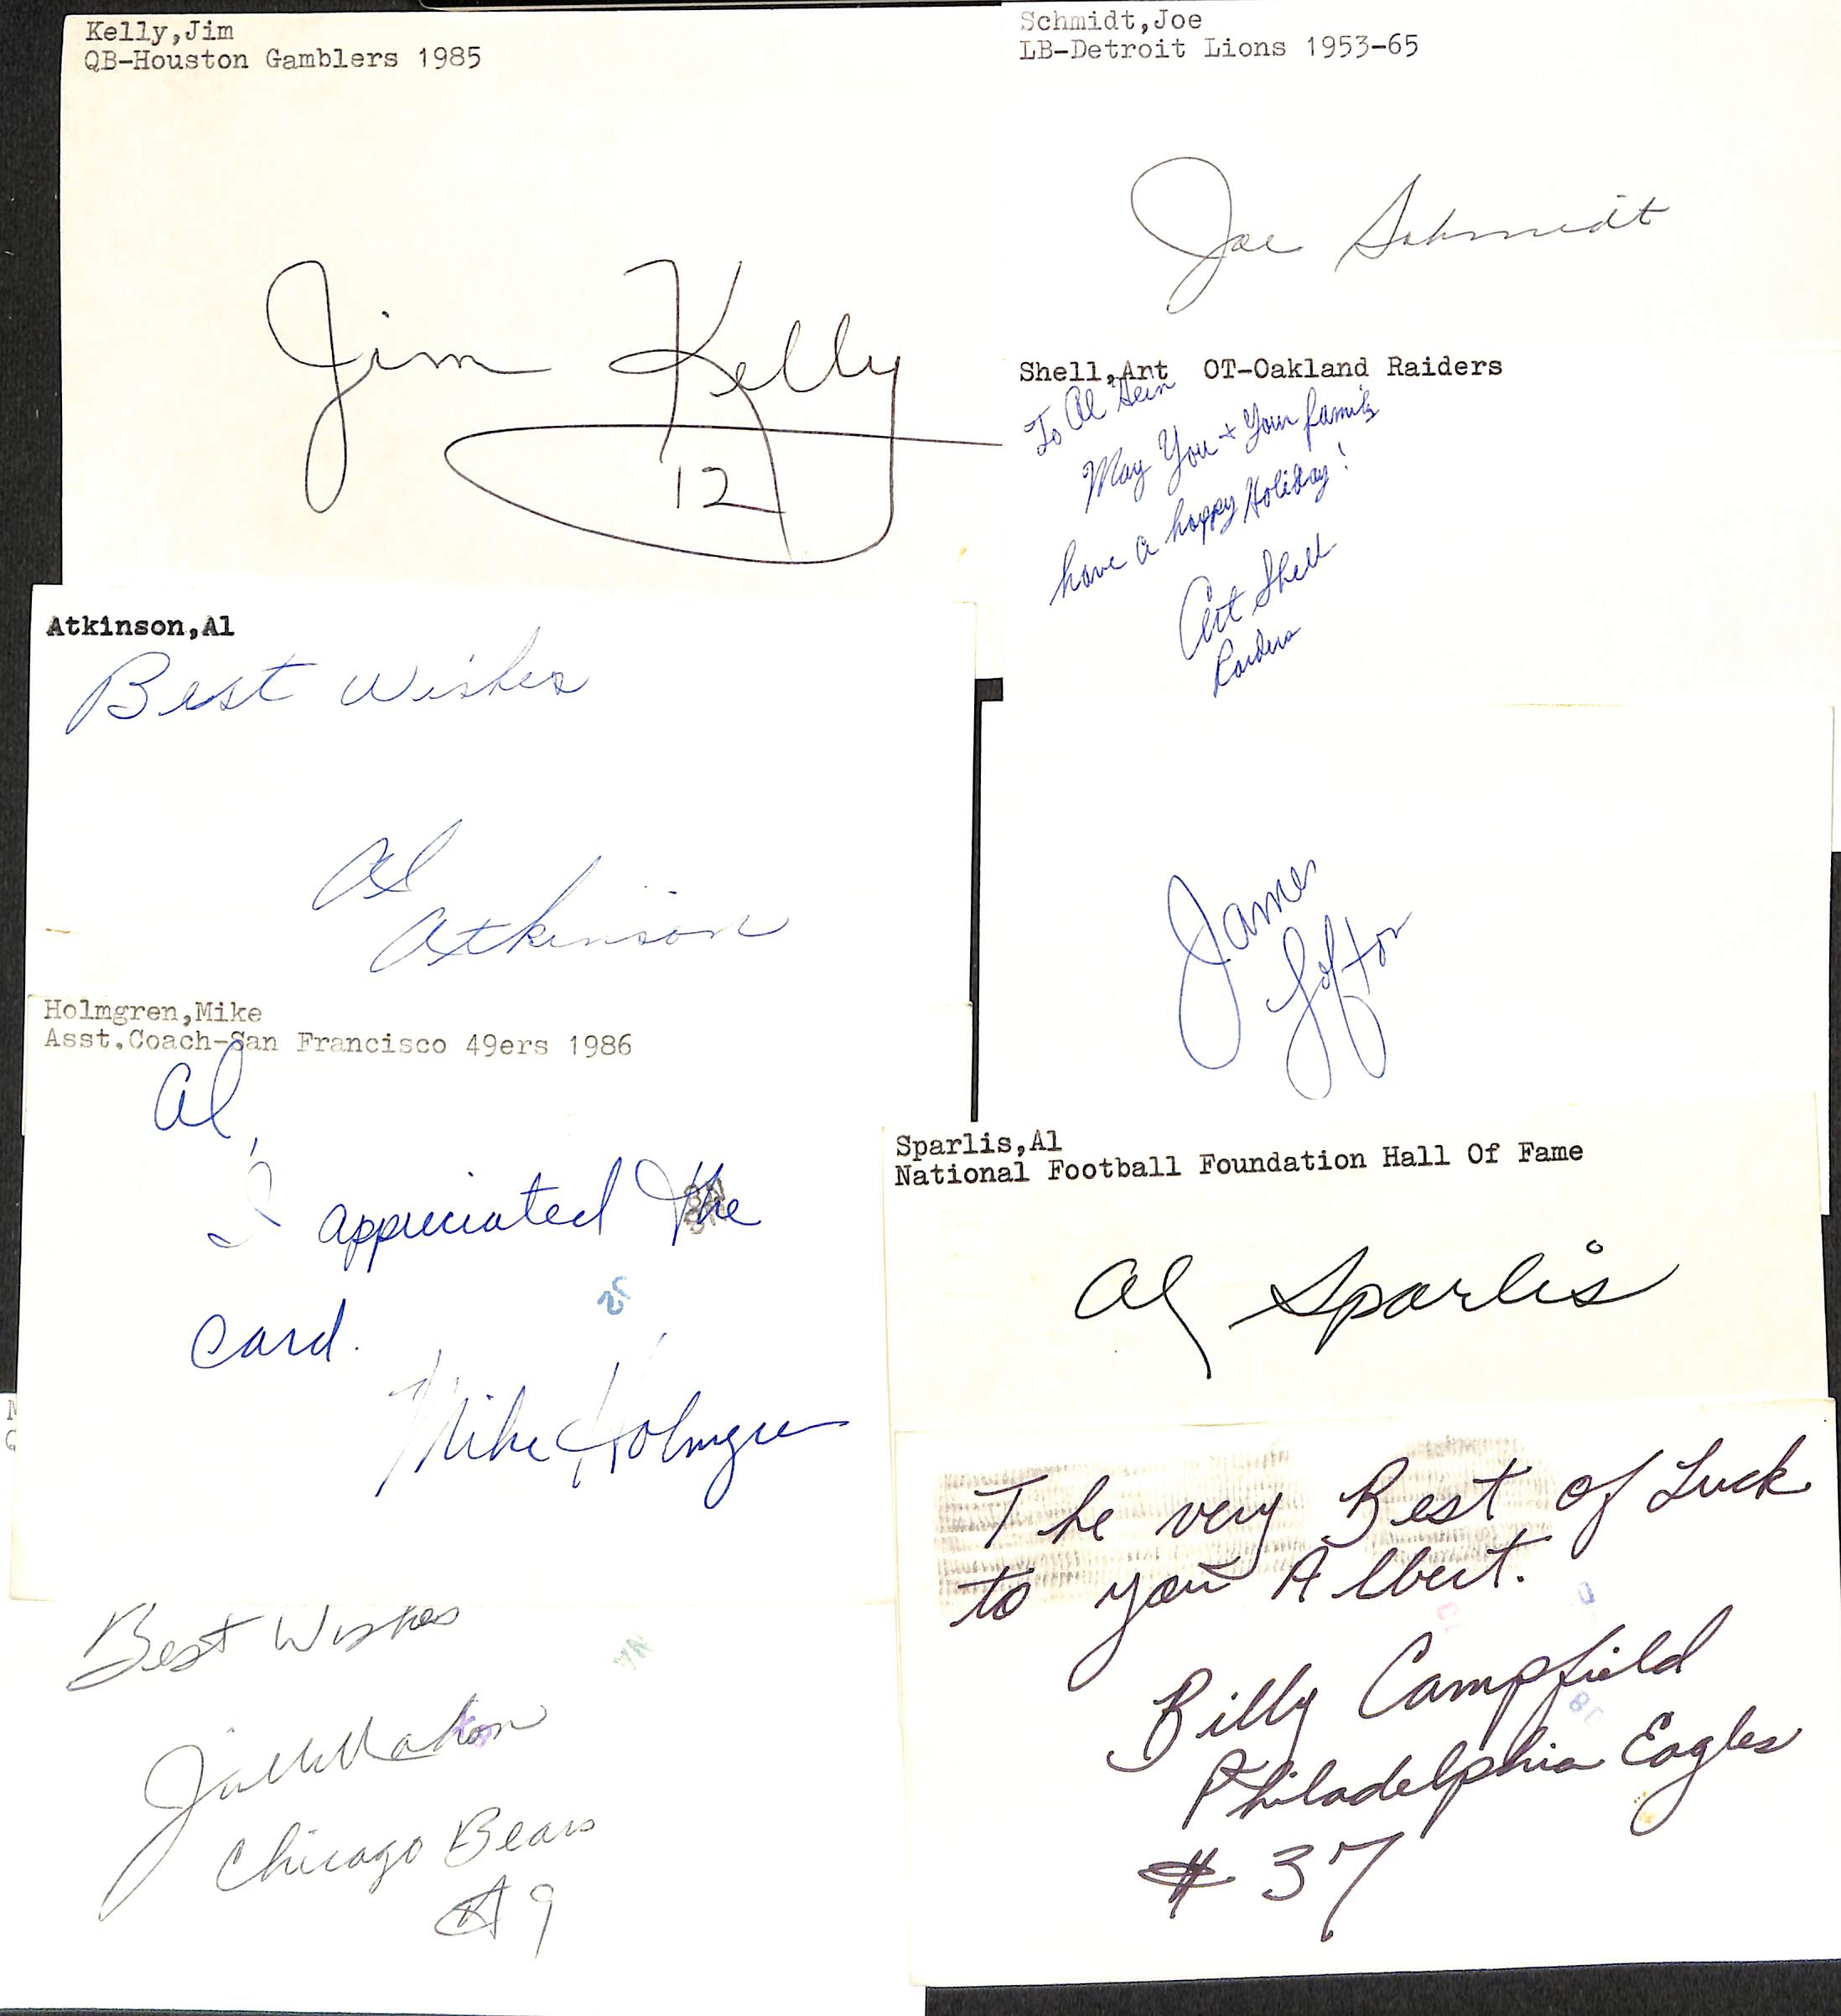 Kelly,Jim
QB-Houston Gamblers 1985
Jim Kelly
12
Schmidt,Joe
LB-Detroit Lions 1953-65
Joe Schmidt
Shell,Art OT-Oakland Raiders
To Al Hein
May You + Your family
have a happy Holiday!
Art Shell
Raiders
Atkinson,Al
Best Wishes
Al
Atkinson
James
Lofton
Holmgren,Mike
Asst.Coach-San Francisco 49ers 1986
Al,
I appreciated the
card.
Mike Holmgren
Sparlis,Al
National Football Foundation Hall Of Fame
Al Sparlis
Best Wishes
Jim McMahon
Chicago Bears
#9
The very Best of Luck
to you Albert.
Billy Campfield
Philadelphia Eagles
# 37